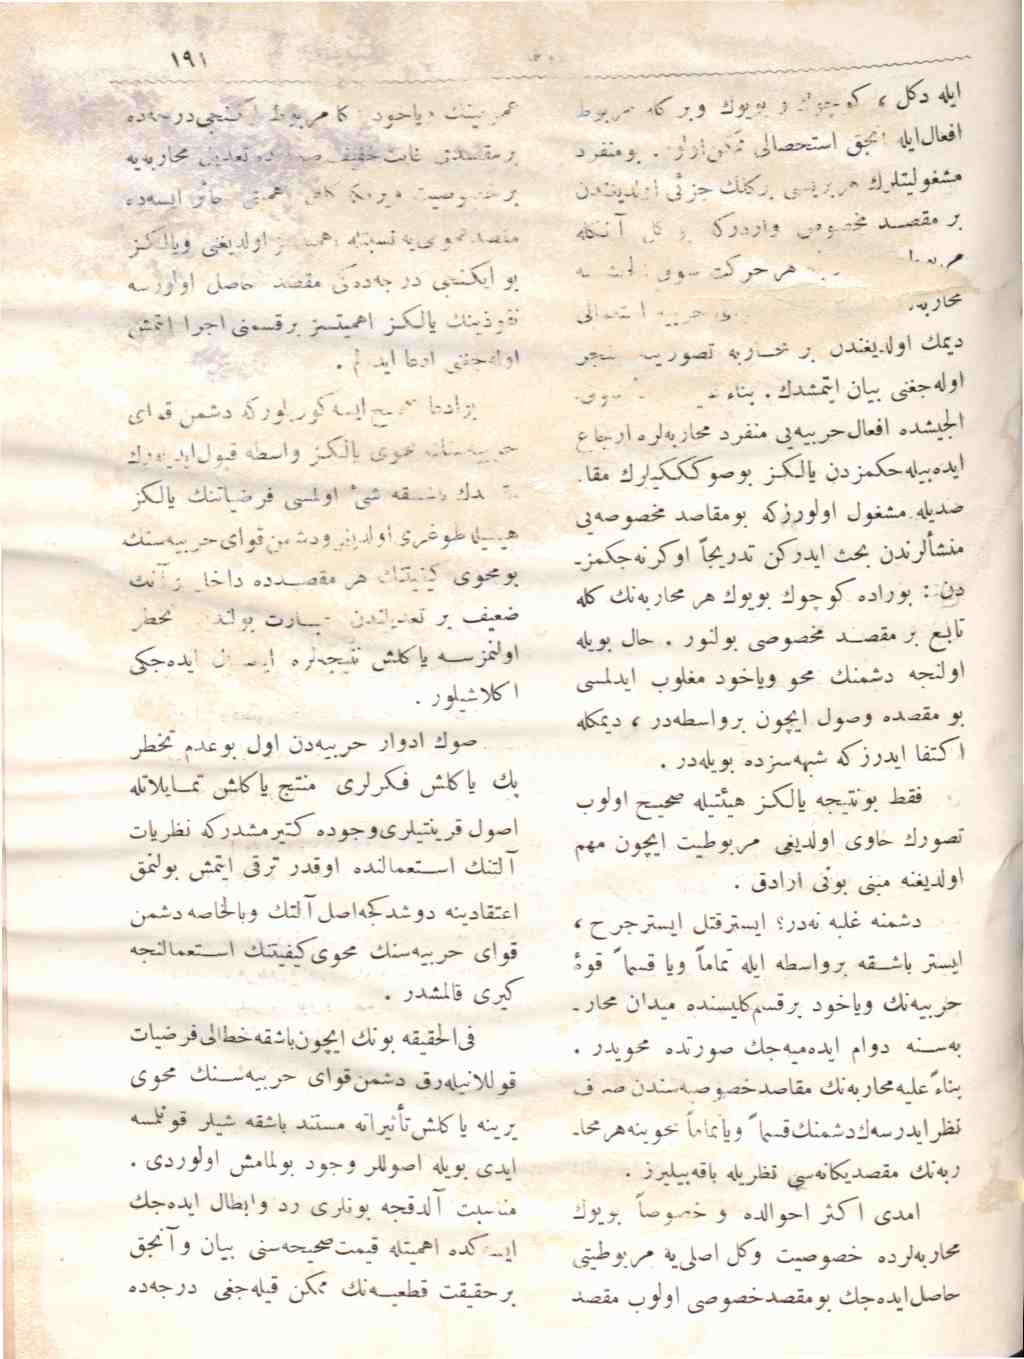 ١٩١
ايله دكل ، كوچوك و بويوك وبر كله مربوط
افعال‌ايله انجق استحصالى ممكن‌اولور . بومنفرد
مشغوليتلرك هربريسى بركلك جزئى اولديغندن
بر مقصد مخصوصى واردركه او كل آنكله
هر حركت سوق الجيشيه
محاربه
ديمك اولديغندن بر محاربه تصورينه منجر
اوله‌جغنى بيان ايتمشدك . بناءً عليه سوق
الجيشده افعال‌حربيه‌يى منفرد محاربه‌لره ارجاع
ايده‌بيله‌جكمزدن يالكز بوصوككيلرك مقا-
صديله مشغول اولورزكه بومقاصد مخصوصه‌يى
منشألرندن بحث ايدركن تدريجاً اوكرنه‌جكمز-
دن : بوراده كوچوك بويوك هر محاربه‌نك كله
تابع بر مقصد مخصوصى بولنور . حال بويله
اولنجه دشمنك محو وياخود مغلوب ايدلمسى
بو مقصده وصول ايچون برواسطه‌در ، ديمكله
اكتفا ايدرزكه شبهه‌سزده بويله‌در .
فقط بونتيجه يالكز هيئتيله صحيح اولوب
تصورك حاوى اولديغى مربوطيت ايچون مهم
اولديغنه مبنى بونى آرادق .
دشمنه غلبه نه‌در؟ ايسترقتل ايسترجرح ،
ايستر باشقه برواسطه ايله تماماً ويا قسماً قوۀ
حربيه‌نك وياخود برقسم‌كليسنده ميدان محار-
به‌سنه دوام ايده‌ميه‌جك صورتده محويدر .
بناءً عليه‌محاربه‌نك مقاصدخصوصه‌سندن صرف
نظر ايدرسه‌ك‌دشمنك‌قسماً وياتماماً محوينه‌هرمحا-
ربه‌نك مقصديكانه‌سى نظريله باقه‌بيليرز .
امدى اكثر احوالده و خصوصاً بويوك
محاربه‌لرده خصوصيت وكل اصلى‌يه مربوطيتى
حاصل‌ايده‌جك بومقصدخصوصى اولوب مقصد
عموميتنك وياخود اكا مربوط ايكنجى‌درجه‌ده
بر مقصدك غايت‌خفيف صورتده تعديل محاربه‌يه
بر خصوصيت ويرمكه كافى اهميتى حائز ايسه‌ده
مقصدعمومى‌يه نسبتله اهميتسز اولديغنى ويالكز
بو ايكنجى درجه‌ده‌كى مقصد حاصل اولورسه
نفوذينك يالكز اهميتسز برقسمنى اجرا ايتمش
اوله‌جغنى ادعا ايدرم .
بوادعا صحيح ايسه كوريلوركه دشمن قواى
حربيه‌سنك محوى يالكز واسطه قبول‌ايديله‌رك
باشقه شىٔ اولمسى فرضياتنك يالكز
هيئتيله طوغرى اولديغى ودشمن‌قواى حربيه‌سنك
بومحوى كيفيتنك هر مقصدده داخل و آنك
ضعيف بر تعديلندن عبارت بولنديغى تخطر
اولنمزسه ياكلش نتيجه‌لره ايصال ايده‌جكى
اكلاشيلور .
صوك ادوار حربيه‌دن اول بوعدم تخطر
پك ياكلش فكرلرى منتج ياكلش تمايلاتله
اصول قرينتيلرى‌وجوده كتيرمشدركه نظريات
آلتنك استعمالنده اوقدر ترقى ايتمش بولنمق
اعتقادينه دوشدكجه‌اصل‌آلتك وبالخاصه دشمن
قواى حربيه‌سنك محوى‌كيفيتنك استعمالنجه
كيرى قالمشدر .
فى‌الحقيقه بونك ايچون‌باشقه‌خطالى‌فرضيات
قوللانيله‌رق دشمن‌قواى حربيه‌سنك محوى
يرينه ياكلش‌تأثيراته مستند باشقه شيلر قونلسه
ايدى بويله اصوللر وجود بولمامش اولوردى .
مناسبت آلدقجه بونلرى رد وابطال ايده‌جك
ايسه‌كده اهميتله قيمت‌صحيحه‌سنى بيان وآنجق
برحقيقت قطعيه‌نك ممكن قيله‌جغى درجه‌ده